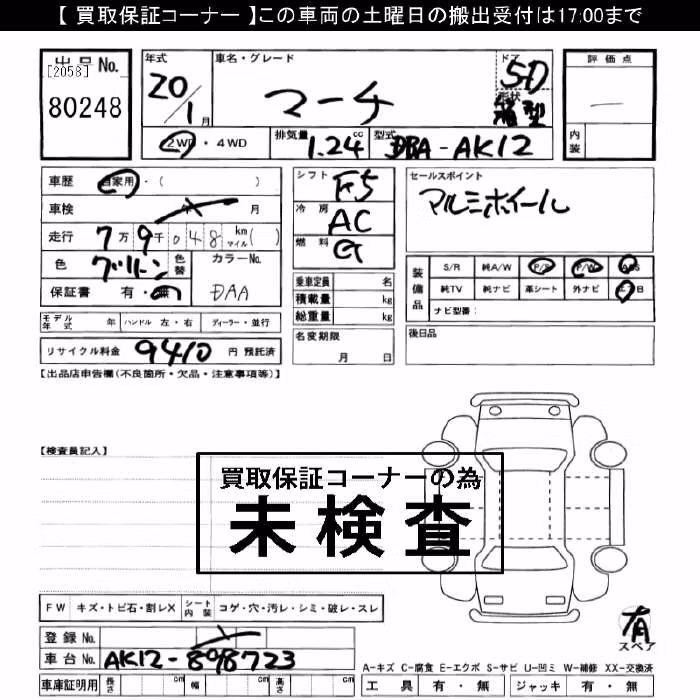 【 買取保証コーナー 】この車両の土曜日の搬出受付は17:00まで
出品No.
[2058]
80248
年式
20/1月
車名・グレード
マーチ
ドア
5D
形状
箱型
評価点
内装
2WD・4WD
排気量
1.24cc
型式
DBA-AK12
車歴 自家用・( )
車検 年 月
走行 7万9千048 km マイル( )
色 グリーン 色替
カラーNo.
DAA
保証書 有・無
シフト F5
冷房 AC
燃料 G
セールスポイント
アルミホイール
装備品
S/R 純A/W P/S P/W ABS
純TV 純ナビ 革シート 外ナビ エアB
ナビ型番:
乗車定員 名
積載量 kg
総重量 kg
モデル年式 年 ハンドル 左・右 ディーラー・並行
名変期限
月 日
後日品
リサイクル料金 9410 円 預託済
【出品店申告欄(不良箇所・欠品・注意事項等)】
【検査員記入】
買取保証コーナーの為
未検査
FW キズ・トビ石・割レX シート内装 コゲ・穴・汚レ・シミ・破レ・スレ
有
スペア
登録No.
車台No. AK12-898723
車庫証明用 長さ cm 幅 cm 高さ cm
A-キズ C-腐食 E-エクボ S-サビ U-凹ミ W-補修 XX-交換済
工具 有・無 ジャッキ 有・無